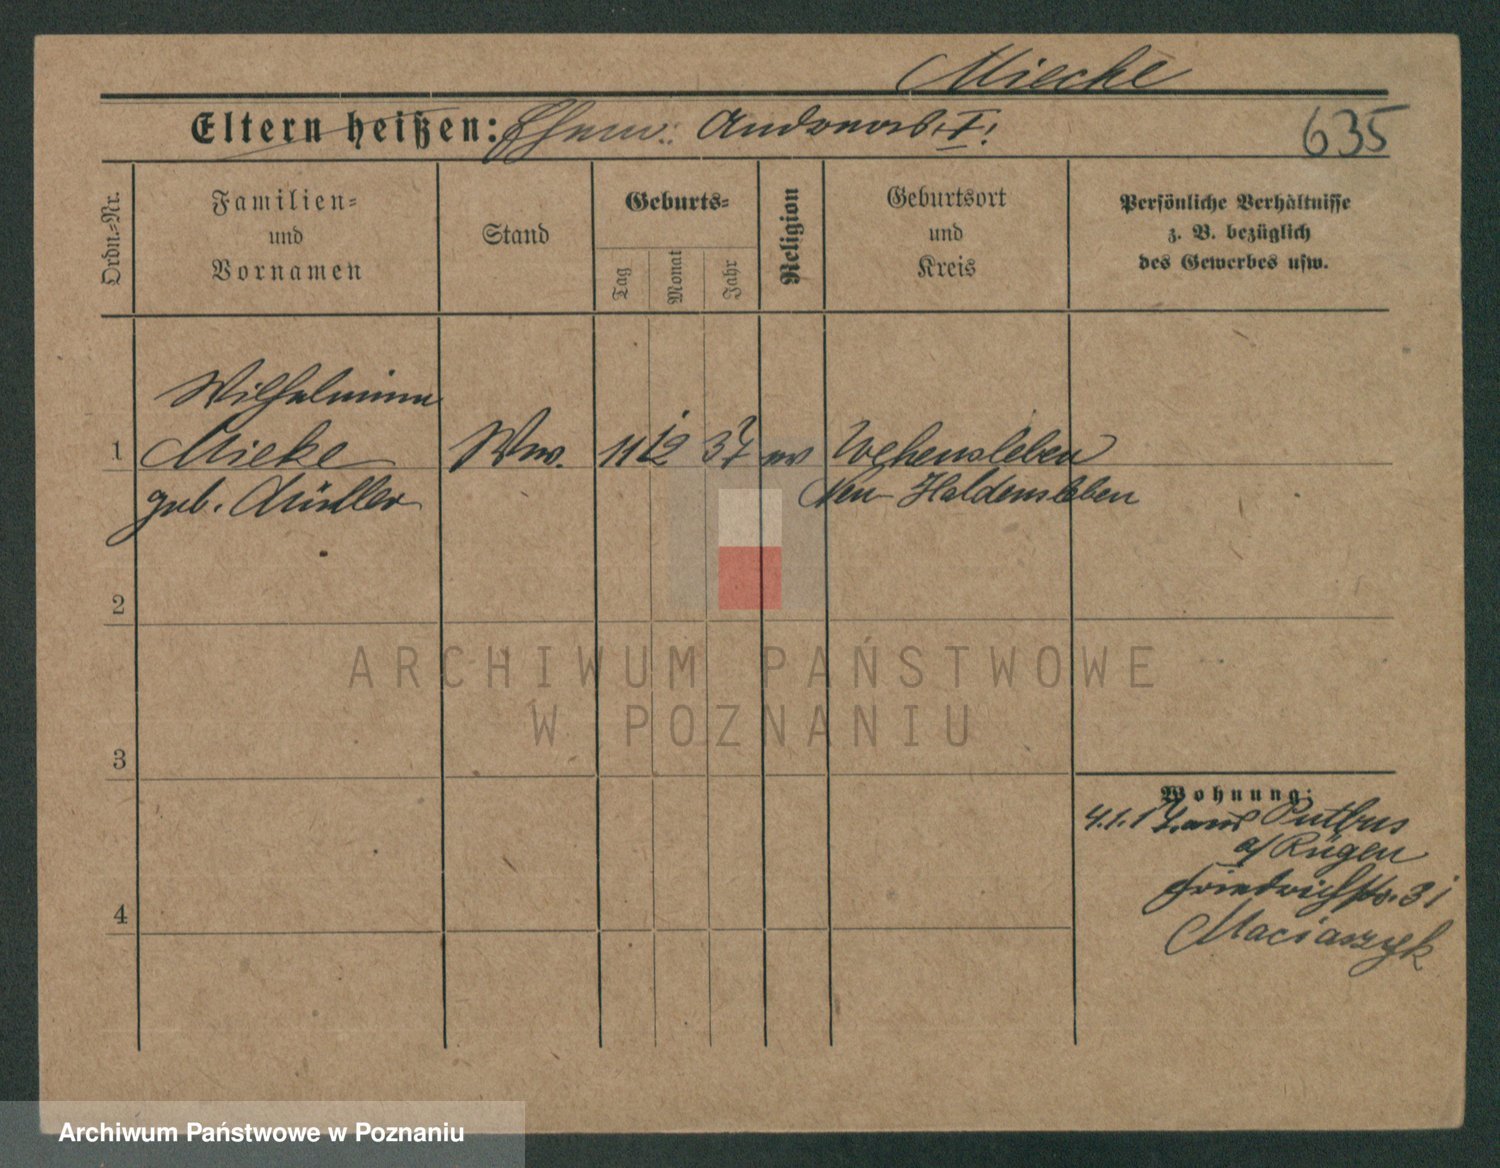 Miecke
Eltern heißen: Ehem: Andreas. I.
635
Ordn.-Nr.
Familien-
und
Vornamen
Stand
Geburts-
Tag
Monat
Jahr
Religion
Geburtsort
und
Kreis
Persönliche Verhältnisse
z. B. bezüglich
des Gewerbes usw.
Wilhelmine
1 Mieke Ww. 11 12 37 ev
geb. Müller Neu Haldensleben
2
ARCHIWUM PAŃSTWOWE
W POZNANIU
3
Wohnung:
4.1.17. aus Putbus
a/ Rügen
Friedrichstr. 31
Maciaszyk
4
Archiwum Państwowe w Poznaniu